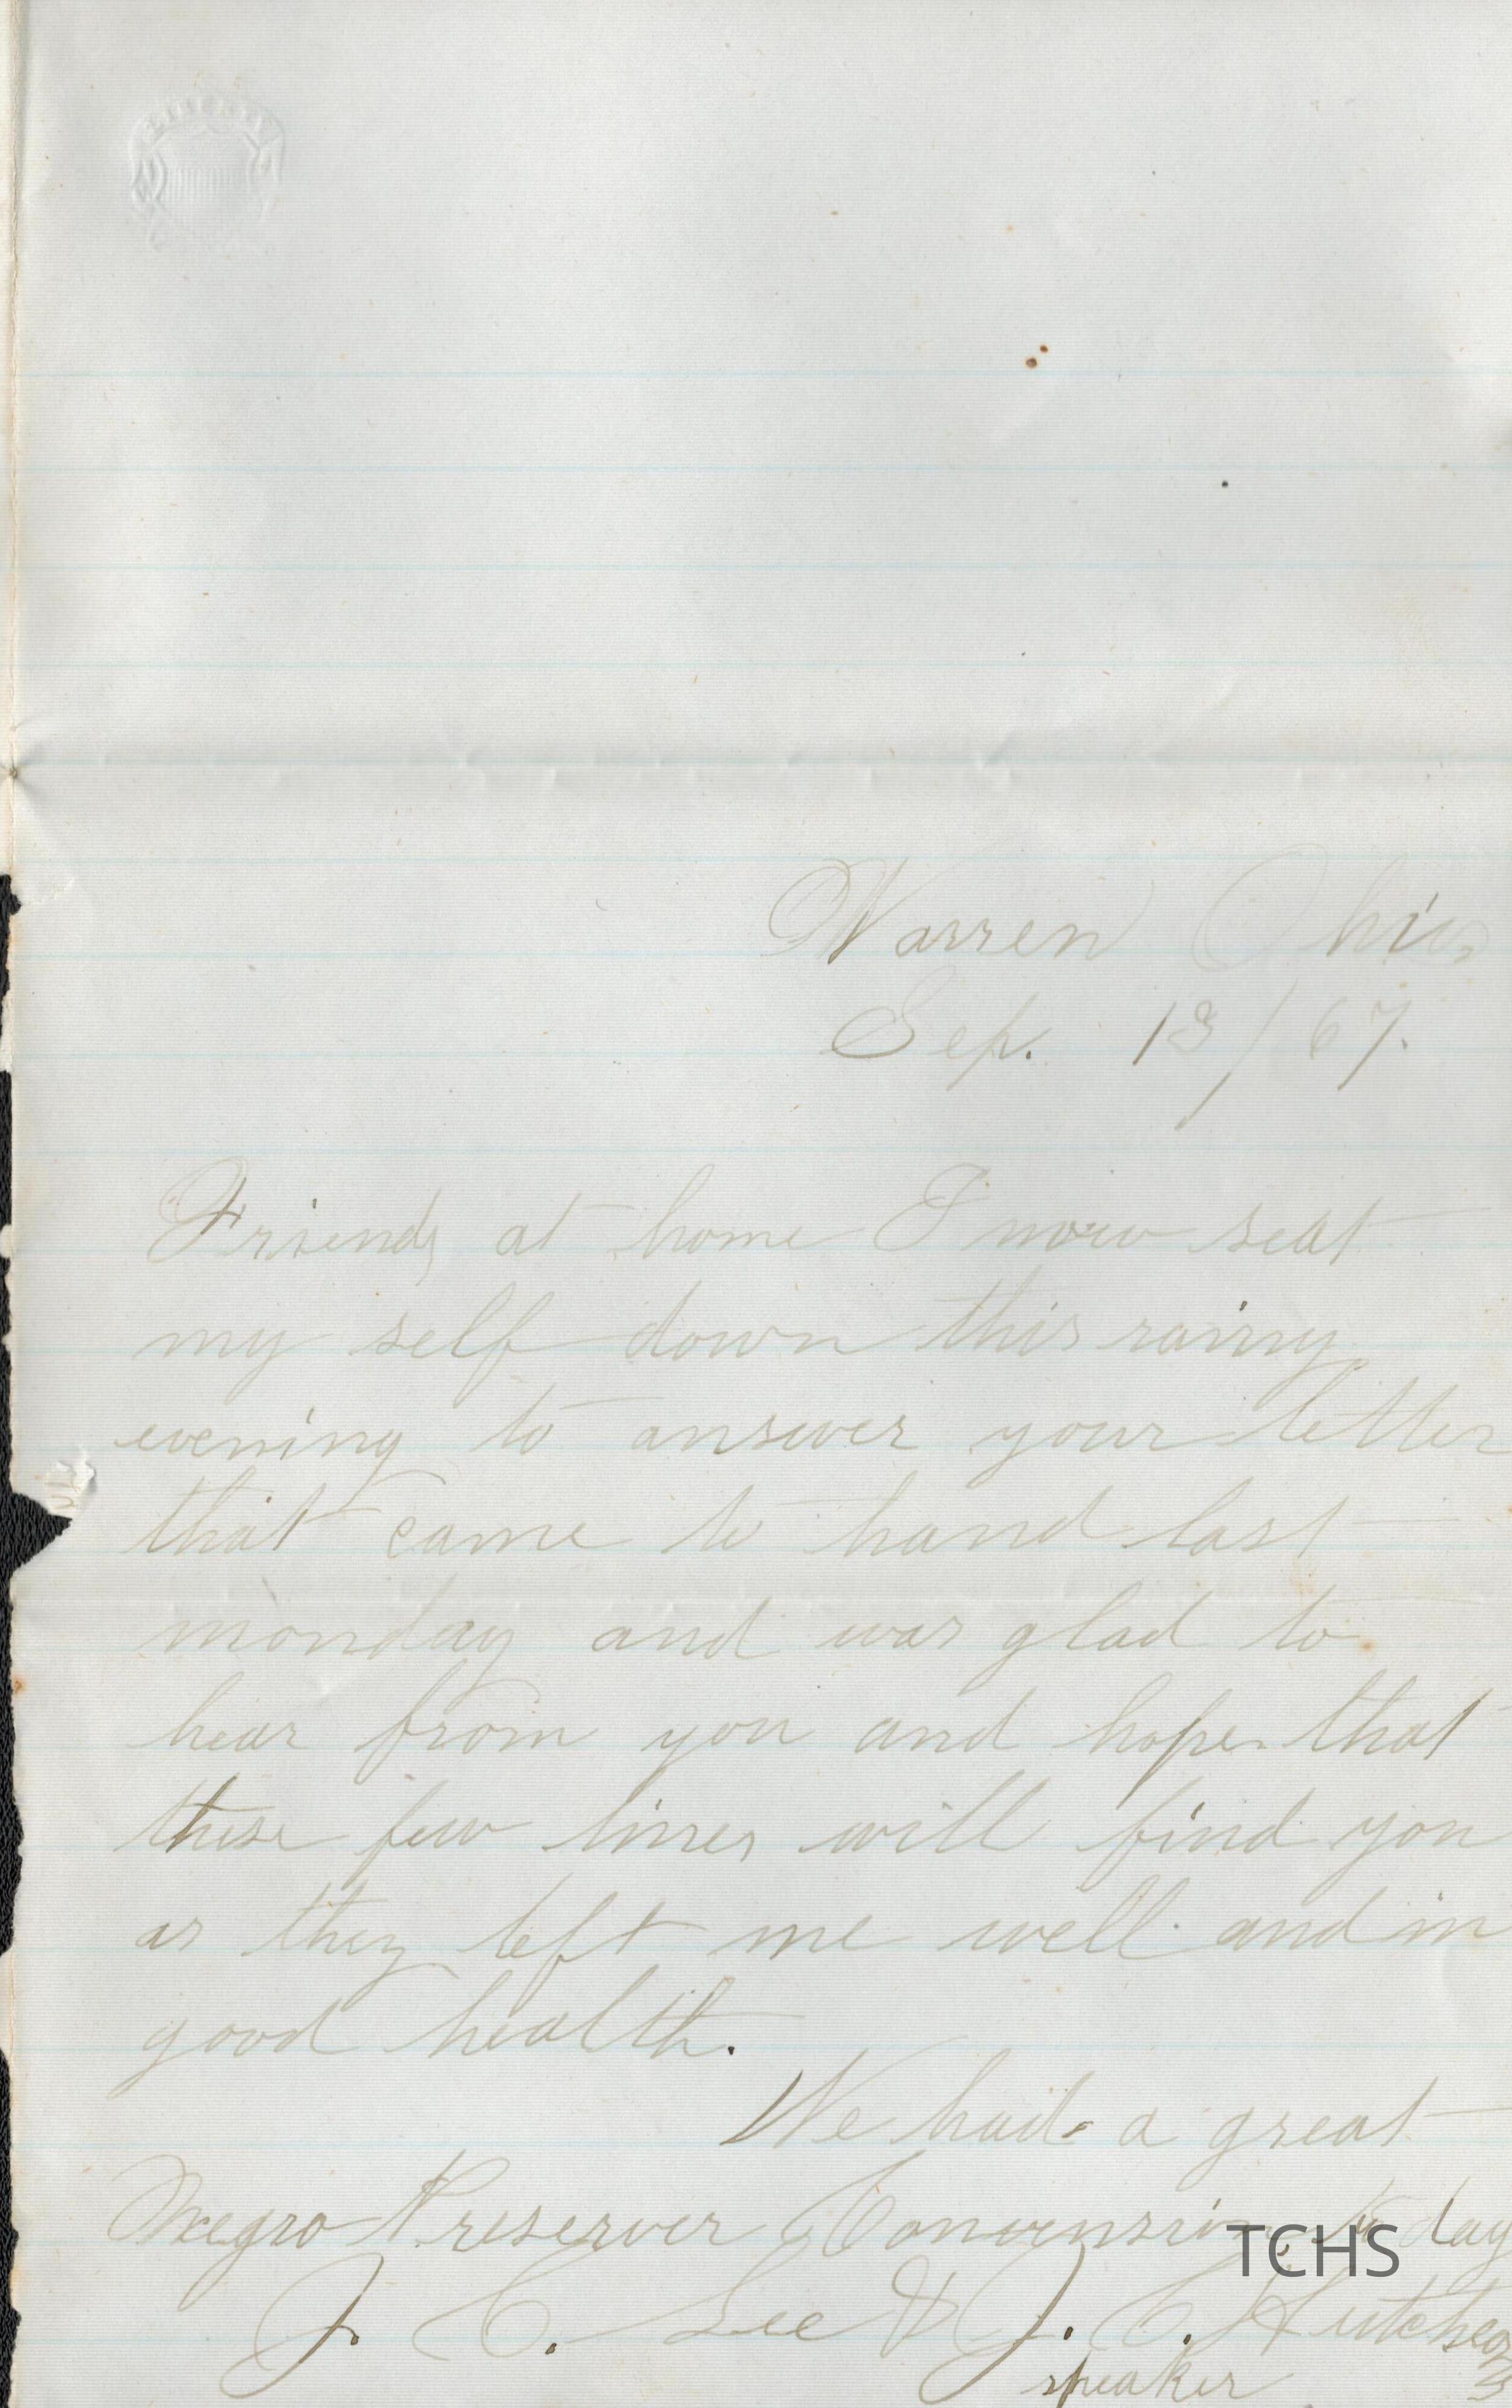 Warren Ohio
Sep. 13/67.
Friends at home I now seat
my self down this rainy
evening to answer your letter
that came to hand last
monday and was glad to
hear from you and hope that
these few lines will find you
as they left me well and in
good health.
We had a great
Negro Preserver Convension to day
TCHS
J. C. Lee & J. C. Hutcheons
speaker